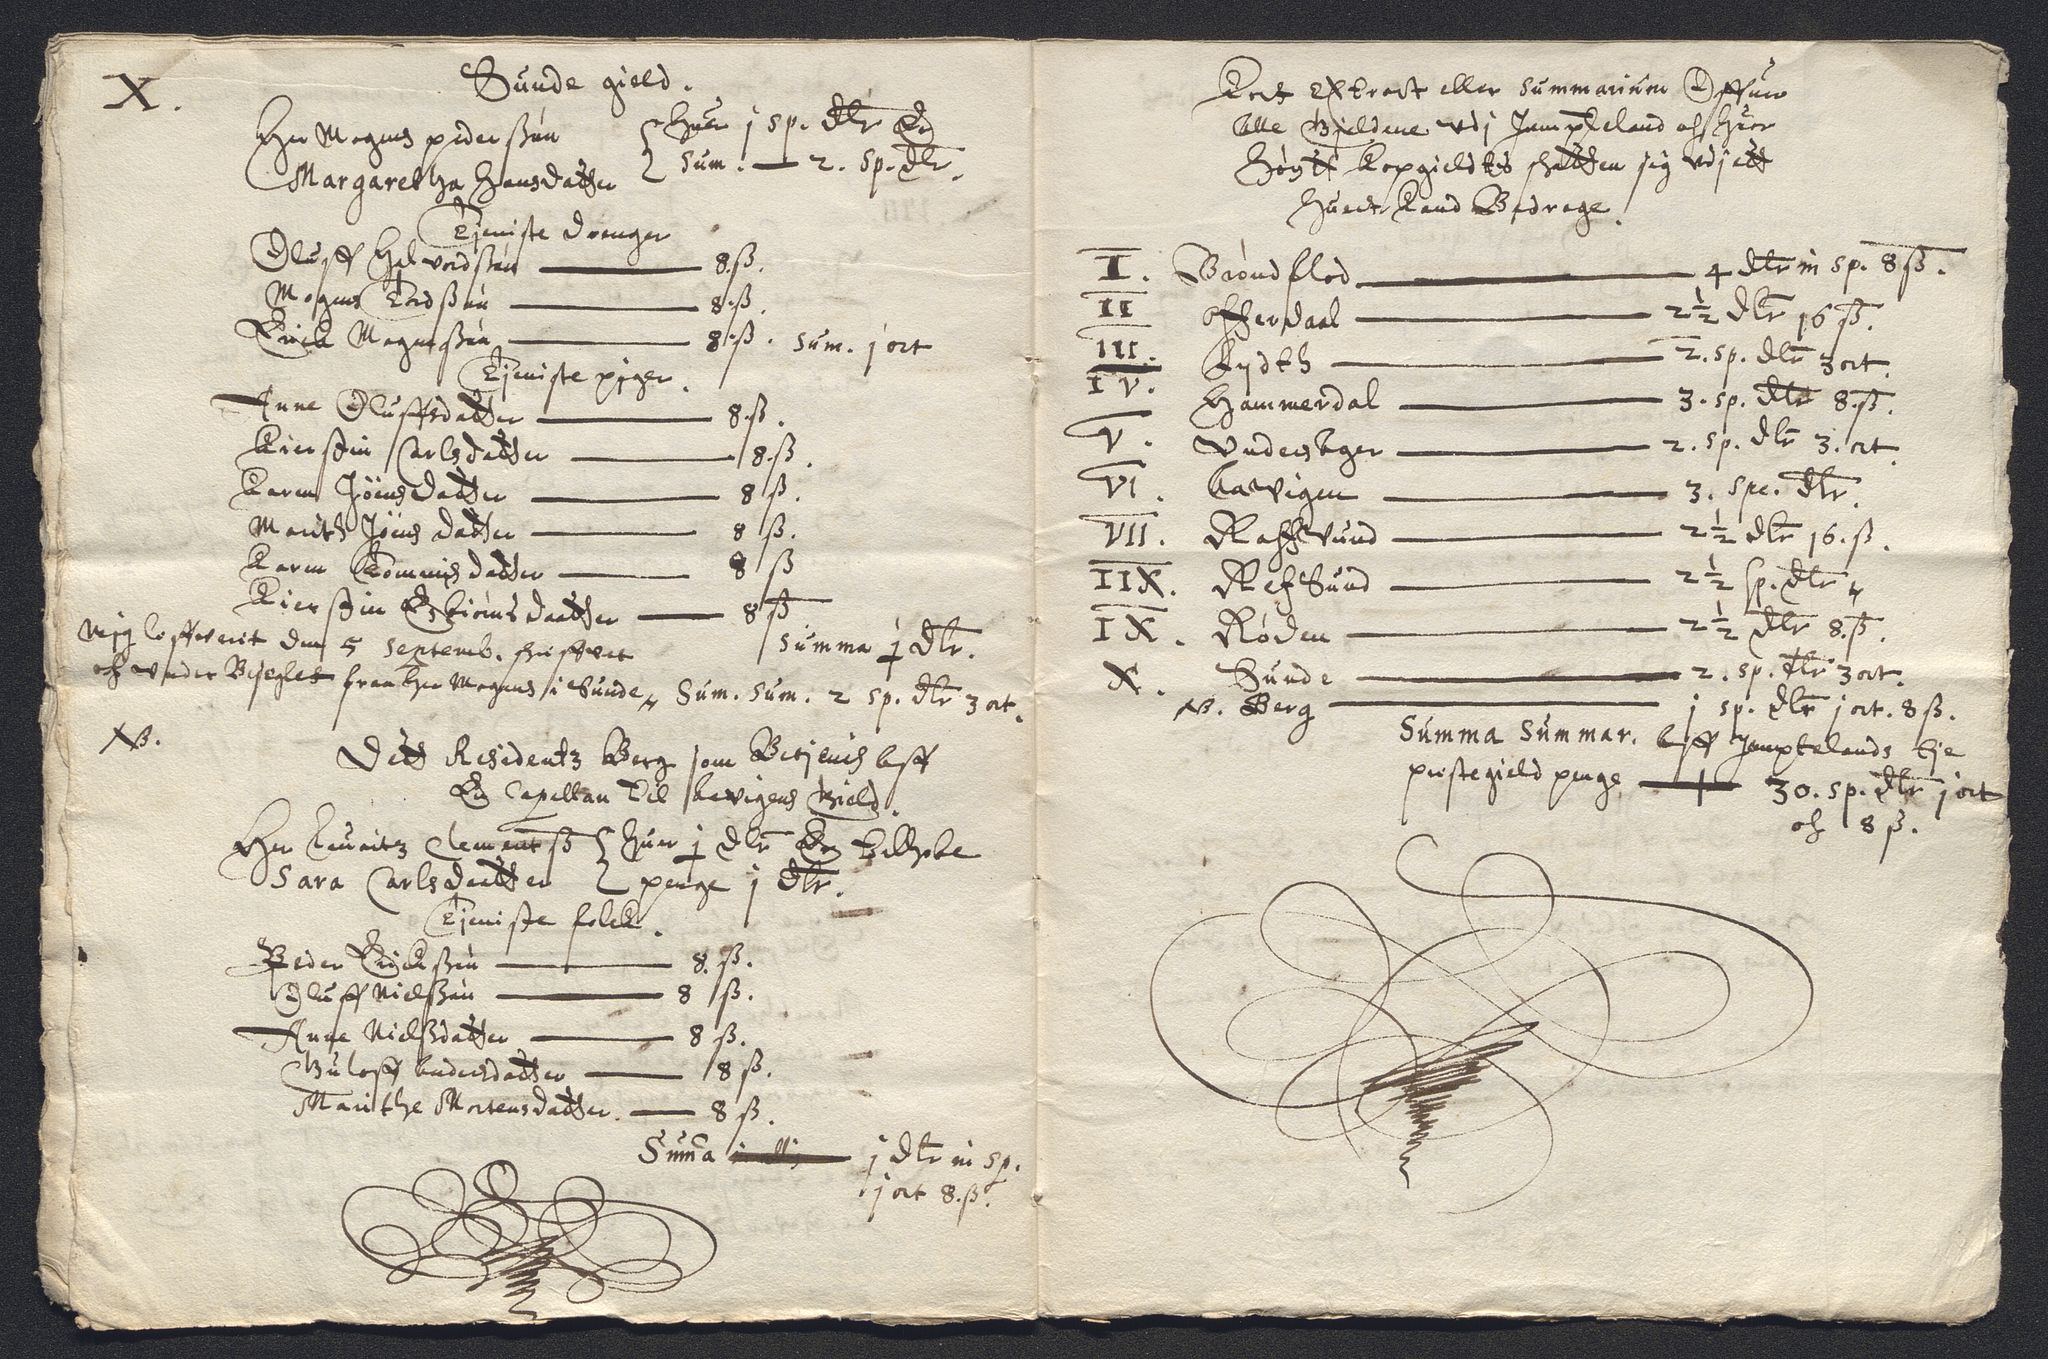 X.
Sunde gield.
Her Mogens pederssøn { huer j sp. dlr Er
Margaretha Hansdatter { sum. — 2. sp. dlr.
Tjeniste drenger
Oluff Halvordssøn — 8.ß.
Mogens Erdssøn — 8.ß.
Erich Mogenssøn — 8.ß. sum. j ort
Tjeniste piger.
Anne Oluffsdatter — 8.ß.
Kierstin Carlsdatter — 8.ß.
Karen Jönsdatter — 8 ß.
Marith Jöns datter — 8 ß.
Karen Tommis datter — 8 ß
Kierstin Esbiörns daatter — 8 ß
Summa ½ dlr.
Mig leffuerit den 5 Septemb. shriffuet
och under Beseglet fraa her Mogens i Sunde, Sum. Sum. 2 sp. dlr 3 ort.
NB.
Dett Residentz Berg som Betjenis aff
En Capellan til Aavigens Gield.
Her Lauritz Clementß { huer ½ dlr Er tillhobe
Sara Carlsdaatter { penge j dlr.
Tjeniste folck.
Peder Erickssøn — 8. ß.
Oluff Nielssøn — 8 ß.
Anne Nielsdatter — 8 ß.
Guloff Andersdatter — 8 ß.
Marithe Mortensdatter. — 8 ß.
Summa j dlr in sp.
j ort 8.ß.
Kort Extract eller Summarium Offuer
Alle Gieldene udj Jempteland och huor
høytt kopgieldtz shatten sig udj ett
huert kand Bedrage.
I. Brøndflod — 4 dlr in sp. 8 ß.
II Offerdaal — 2½ dlr 16 ß.
III. Lydth — 2. sp. dlr 3 ort.
IV. Hammerdal — 3. sp. dlr 8.ß.
V. Undersager — 2. sp. dlr 3. ort.
VI. Aavigen — 3. spe. dlr.
VII. Raffsund — 2½ dlr 16. ß.
IIX. Refsund — 2½ sp. dlr
IX. Røden — 2½ dlr 8.ß.
X. Sunde — 2. sp. dlr 3 ort.
NB. Berg — j sp. dlr j ort. 8 ß.
Summa Summar. Aff Jemptelands
prestegield penge — 30. sp. dlr j ort
och 8 ß.